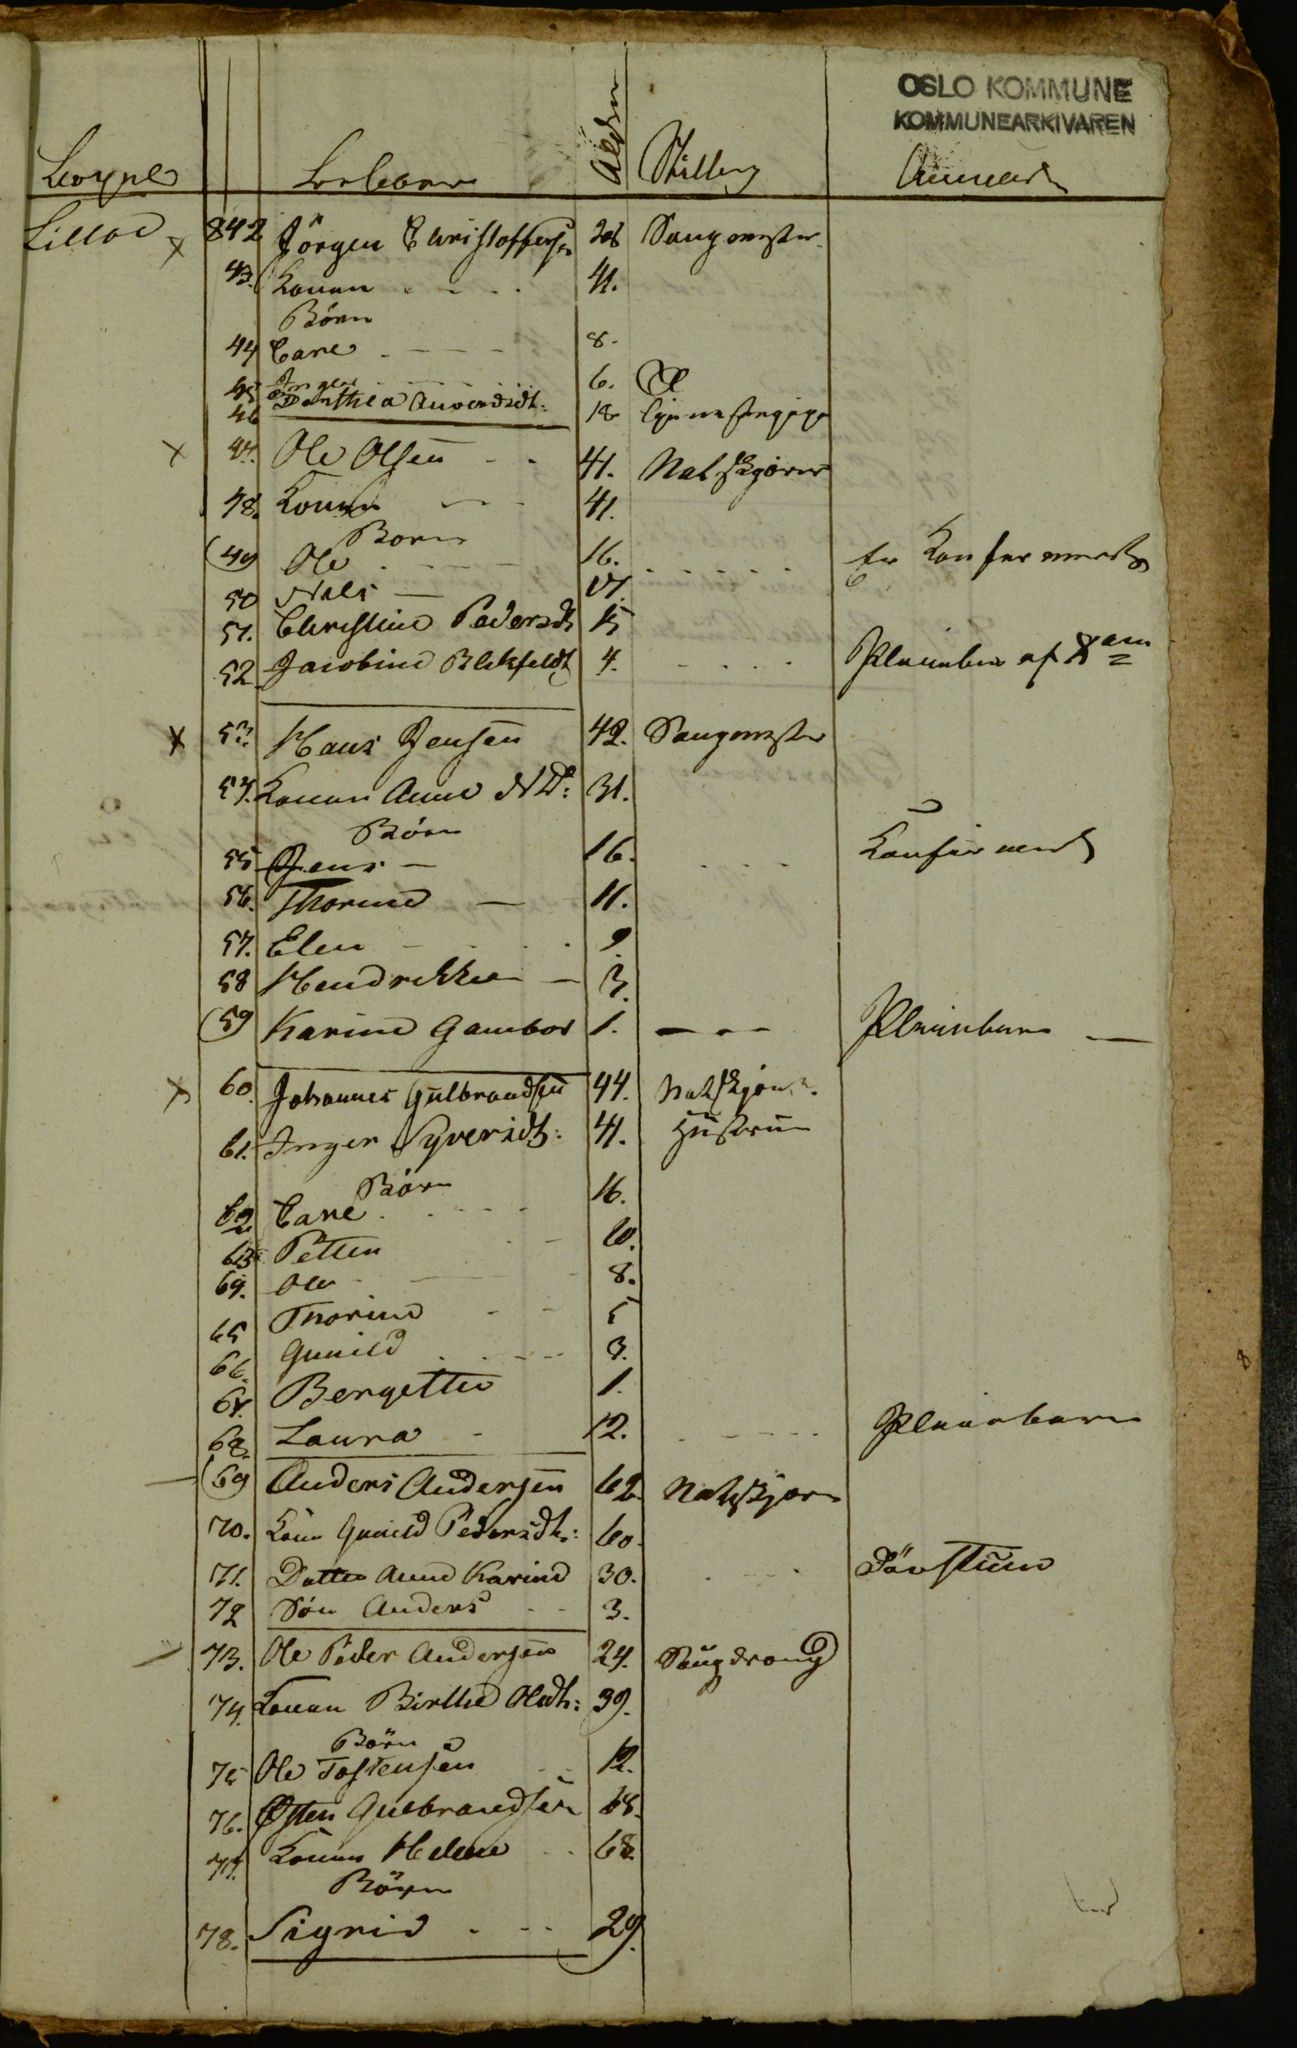 OSLO KOMMUNE
KOMMUNEARKIVAREN
Alder Stilling
842 Jörgen Christoffersen 28 Saugmester
43. Konen 41.
Börn
44 Care 8.
45 Inger 6.
46 Dorthea 18
47. Ole Olsen 41. Natskjører
48. Konen 41.
Born
49 Ole 16. Er Konfermert
50 Nils
51. Christine Pedersdt 15
52 Jacobine 4. Pleiebarn af
53. Hans Jensen 42. Saugmester
54. Konen Anne 31.
Börn
55 Jens 16. Konfirmert
56. Thorine 11.
57. Elen 9
58 Hendrikke 3.
59 Karine 1. Pleiebarn
60. Johannes Gulbrandsen 44. Natskjører
61. Inger Syversdt: 41. Hustrue
Börn
62 Care 16.
63 Petter 10.
64. Ole 8.
65 Thorine 5
66. Gunild 3.
67. Bergette 1.
68. Laura 12. Pleiebarn
69 Anders Andersen 62 Natskjører
70. Kone Gunild Pedersdt: 60.
71. Datter Anne Karine 30.
72 Sön Anders 3.
73. Ole Peder Andersen 24. Saugdreng
74. Konen Birthe Olsdt: 39.
Börn
75 Ole Tostensen 12.
76. Østen Gulbrandsen 68.
77. Konen Helene 68.
Börn
78. Sigrid 29.